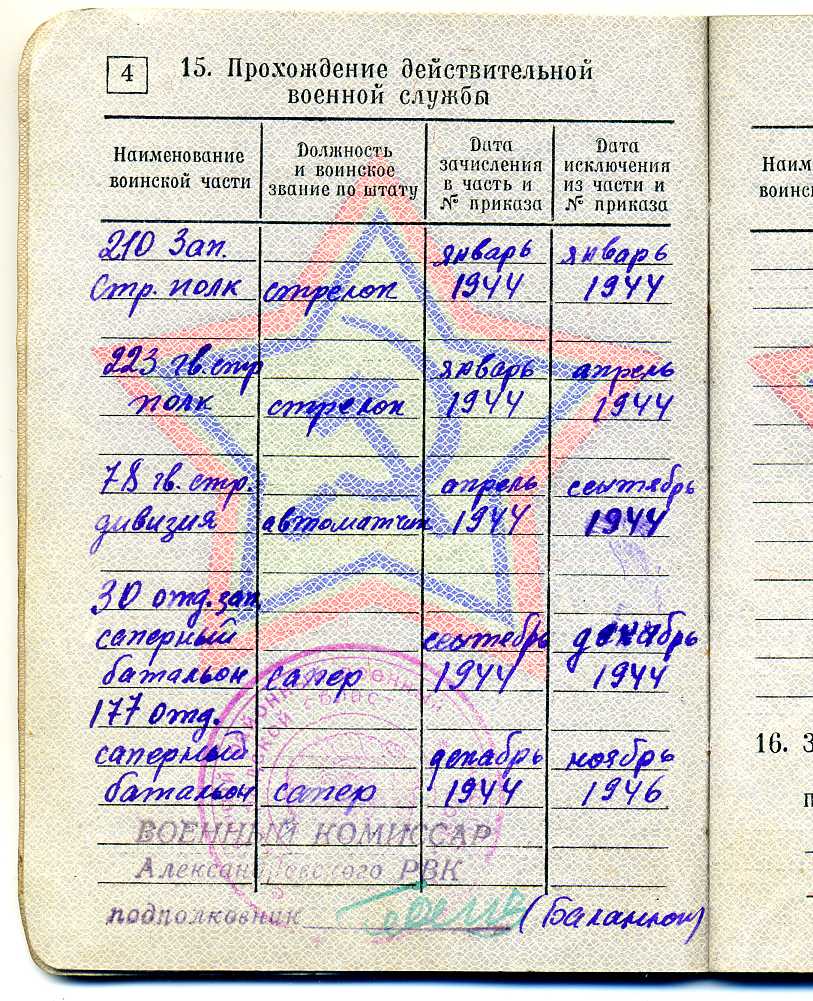 4
15. Прохождение действительной
военной службы
Наименование
воинской части
Должность
и воинское
звание по штату
Дата
зачисления
в часть и
№ приказа
Дата
исключения
из части и
№ приказа
210 Зап. январь январь
Стр. полк стрелок 1944 1944
223 гв. стр январь апрель
полк стрелок 1944 1944
78 гв. стр. апрель сентябрь
дивизия автоматчик 1944 1944
30 отд. зап.
саперный сентебрь декабрь
батальон сапер 1944 1944
177 отд.
саперный декабрь ноябрь
батальон сапер 1944 1946
ВОЕННЫЙ КОМИССАР
Александровского РВК
подполковник
Наим
воинс
16. З
п